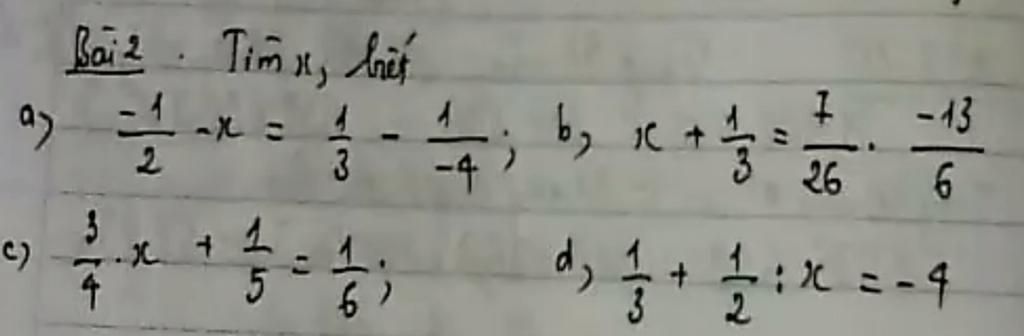 Bài 2. Tìm x, biết
a) \frac{-1}{2} - x = \frac{1}{3} - \frac{1}{-4}; b) x + \frac{1}{3} = \frac{7}{26} . \frac{-13}{6}
c) \frac{3}{4} . x + \frac{1}{5} = \frac{1}{6}; d) \frac{1}{3} + \frac{1}{2} : x = -4